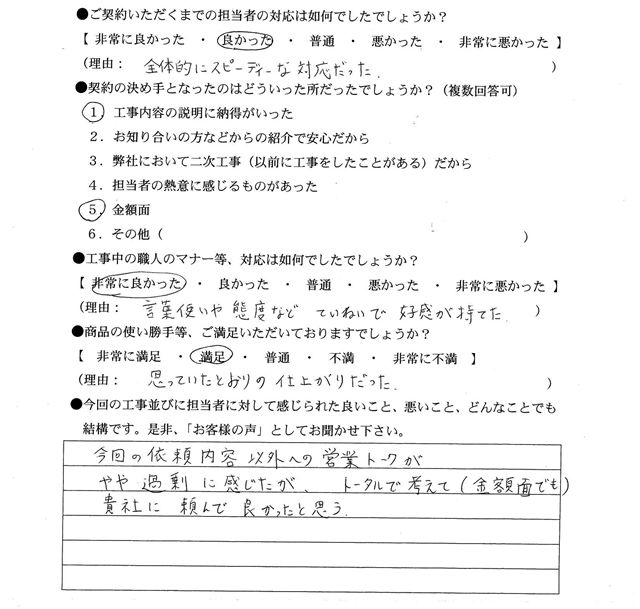 ●ご契約いただくまでの担当者の対応は如何でしたでしょうか？
【 非常に良かった ・ 良かった ・ 普通 ・ 悪かった ・ 非常に悪かった 】
(理由： 全体的にスピーディーな対応だった. )
●契約の決め手となったのはどういった所だったでしょうか？（複数回答可）
１．工事内容の説明に納得がいった
２．お知り合いの方などからの紹介で安心だから
３．弊社において二次工事（以前に工事をしたことがある）だから
４．担当者の熱意に感じるものがあった
５．金額面
６．その他（ ）
●工事中の職人のマナー等、対応は如何でしたでしょうか？
【 非常に良かった ・ 良かった ・ 普通 ・ 悪かった ・ 非常に悪かった 】
(理由： 言葉使いや態度など ていねいで 好感が持てた. )
●商品の使い勝手等、ご満足いただいておりますでしょうか？
【 非常に満足 ・ 満足 ・ 普通 ・ 不満 ・ 非常に不満 】
(理由： 思っていたとおりの仕上がりだった. )
●今回の工事並びに担当者に対して感じられた良いこと、悪いこと、どんなことでも
結構です。是非、「お客様の声」としてお聞かせ下さい。
今回の依頼内容以外への営業トークが
やや過剰に感じたが、トータルで考えて(金額面でも)
貴社に頼んで良かったと思う.